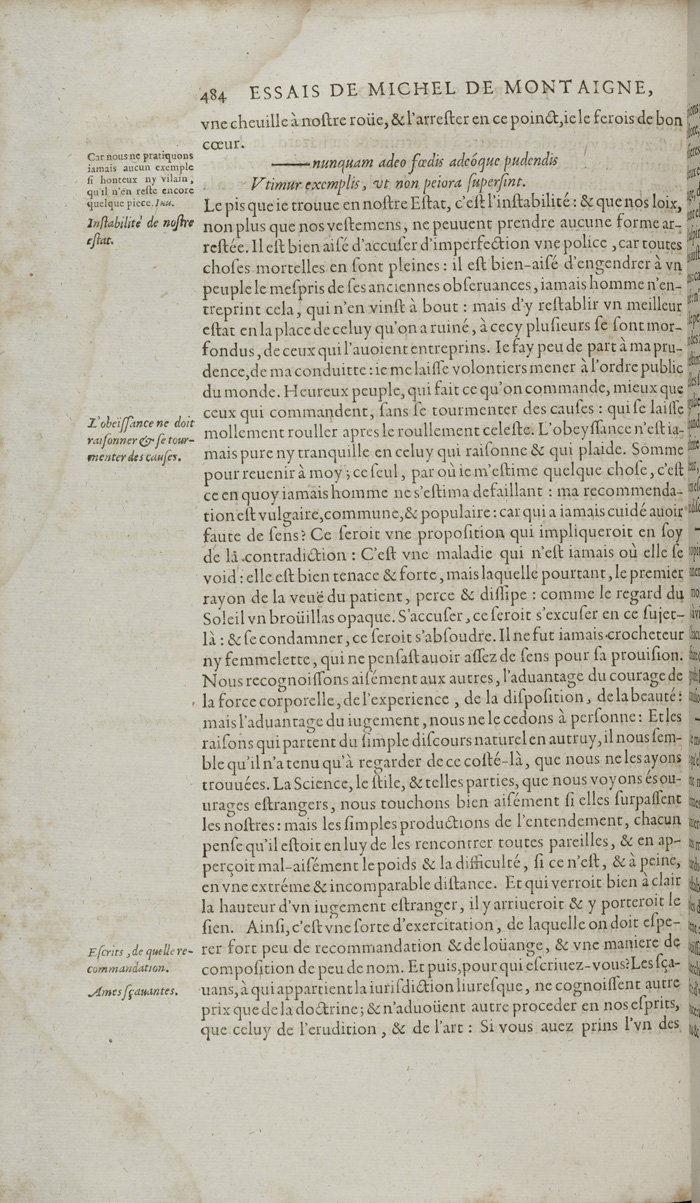 484 ESSAIS DE MICHEL DE MONTAIGNE,
vne cheuille à noſtre roüe, & l'arreſter en ce poinct, ie le ferois de bon
cœur.
Car nous ne pratiquons
iamais aucun exemple
ſi honteux ny vilain,
qu'il n'en reſte encore
quelque piece. Iuu.
—nunquam adeo fœdis adeóque pudendis
Vtimur exemplis, vt non peiora ſuperſint.
Inſtabilité de noſtre
eſtat.
Le pis que ie trouue en noſtre Eſtat, c'eſt l'inſtabilité: & que nos loix,
non plus que nos veſtemens, ne peuuent prendre aucune forme ar-
reſtée. Il eſt bien aiſé d'accuſer d'imperfection vne police, car toutes
choſes mortelles en ſont pleines: il eſt bien-aiſé d'engendrer à vn
peuple le meſpris de ſes anciennes obſeruances, iamais homme n'en-
treprint cela, qui n'en vinſt à bout: mais d'y reſtablir vn meilleur
eſtat en la place de celuy qu'on a ruiné, à cecy pluſieurs ſe ſont mor-
fondus, de ceux qui l'auoient entreprins. Ie fay peu de part à ma pru-
dence, de ma conduitte: ie me laiſſe volontiers mener à l'ordre public
du monde. Heureux peuple, qui fait ce qu'on commande, mieux que
ceux qui commandent, ſans ſe tourmenter des cauſes: qui ſe laiſſe
L'obeïſſance ne doit
raiſonner & ſe tour-
menter des cauſes.
mollement rouller apres le roullement celeſte. L'obeyſſance n'eſt ia-
mais pure ny tranquille en celuy qui raiſonne & qui plaide. Somme
pour reuenir à moy; ce ſeul, par où ie m'eſtime quelque choſe, c'eſt
ce en quoy iamais homme ne s'eſtima defaillant: ma recommenda-
tion eſt vulgaire, commune, & populaire: car qui a iamais cuidé auoir
faute de ſens? Ce ſeroit vne propoſition qui impliqueroit en ſoy
de là contradiction: C'eſt vne maladie qui n'eſt iamais où elle ſe
void: elle eſt bien tenace & forte, mais laquelle pourtant, le premier
rayon de la veuë du patient, perce & diſſipe: comme le regard du
Soleil vn broüillas opaque. S'accuſer, ce ſeroit s'excuſer en ce ſujet-
là: & ſe condamner, ce ſeroit s'abſoudre. Il ne fut iamais crocheteur
ny femmelette, qui ne penſaſt auoir aſſez de ſens pour ſa prouiſion.
Nous recognoiſſons aiſément aux autres, l'aduantage du courage de
la force corporelle, de l'experience, de la diſpoſition, de la beauté:
mais l'aduantage du iugement, nous ne le cedons à perſonne: Et les
raiſons qui partent du ſimple diſcours naturel en autruy, il nous ſem-
ble qu'il n'a tenu qu'à regarder de ce coſté-là, que nous ne les ayons
trouuées. La Science, le ſtile, & telles parties, que nous voyons és ou-
urages eſtrangers, nous touchons bien aiſément ſi elles ſurpaſſent
les noſtres: mais les ſimples productions de l'entendement, chacun
penſe qu'il eſtoit en luy de les rencontrer toutes pareilles, & en ap-
perçoit mal-aiſément le poids & la difficulté, ſi ce n'eſt, & à peine,
en vne extréme & incomparable diſtance. Et qui verroit bien à clair
la hauteur d'vn iugement eſtranger, il y arriueroit & y porteroit le
ſien. Ainſi, c'eſt vne ſorte d'exercitation, de laquelle on doit eſpe-
Eſcrits, de quelle re-
commandation.
rer fort peu de recommandation & de loüange, & vne maniere de
compoſition de peu de nom. Et puis, pour qui eſcriuez-vous? Les ſça-
Ames ſçauantes.
uans, à qui appartient la iuriſdiction liureſque, ne cognoiſſent autre
prix que de la doctrine; & n'aduoüent autre proceder en nos eſprits,
que celuy de l'erudition, & de l'art: Si vous auez prins l'vn des